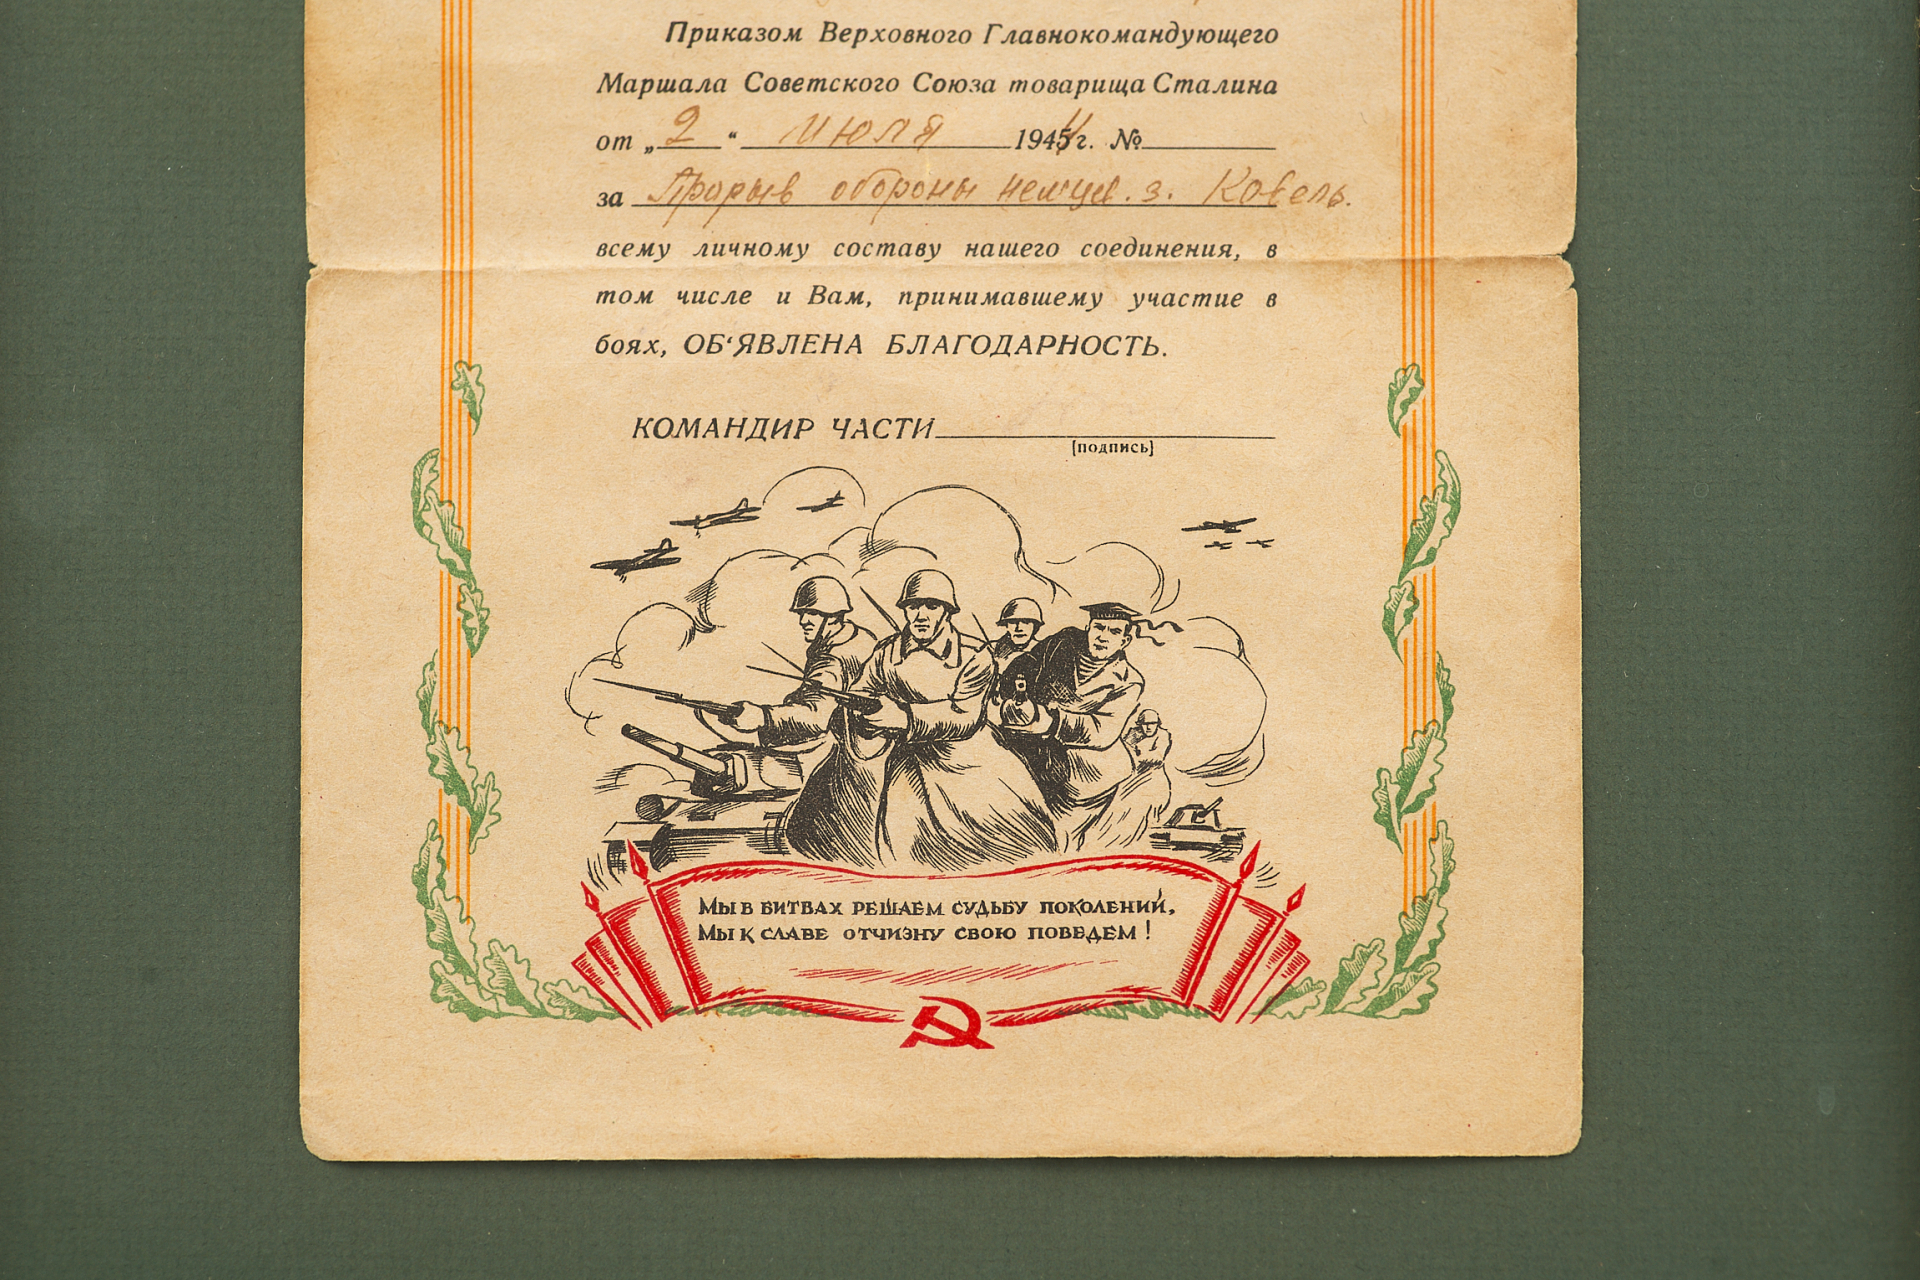 Приказом Верховного Главнокомандующего
Маршала Советского Союза товарища Сталина
от „2“ июля 1944г. №
за Прорыв обороны немцев. з. Ковель.
всему личному составу нашего соединения, в
том числе и Вам, принимавшему участие в
боях, ОБ‘ЯВЛЕНА БЛАГОДАРНОСТЬ.
КОМАНДИР ЧАСТИ
[подпись]
Мы в битвах решаем судьбу поколений,
Мы к славе отчизну свою поведем!